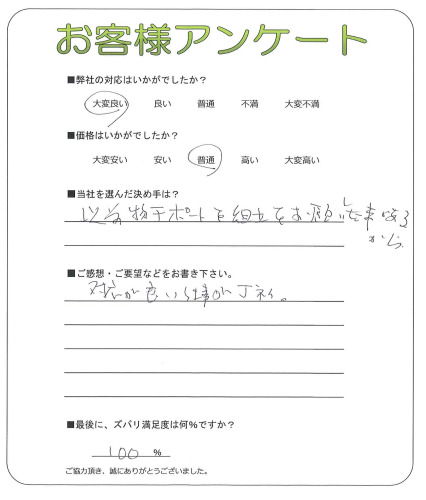 お客様アンケート
■弊社の対応はいかがでしたか？
大変良い 良い 普通 不満 大変不満
■価格はいかがでしたか？
大変安い 安い 普通 高い 大変高い
■当社を選んだ決め手は？
以前物干ポートを組立をお願いし
から
■ご感想・ご要望などをお書き下さい。
対応が良い仕事が丁ネイ。
■最後に、ズバリ満足度は何％ですか？
100 ％
ご協力頂き、誠にありがとうございました。